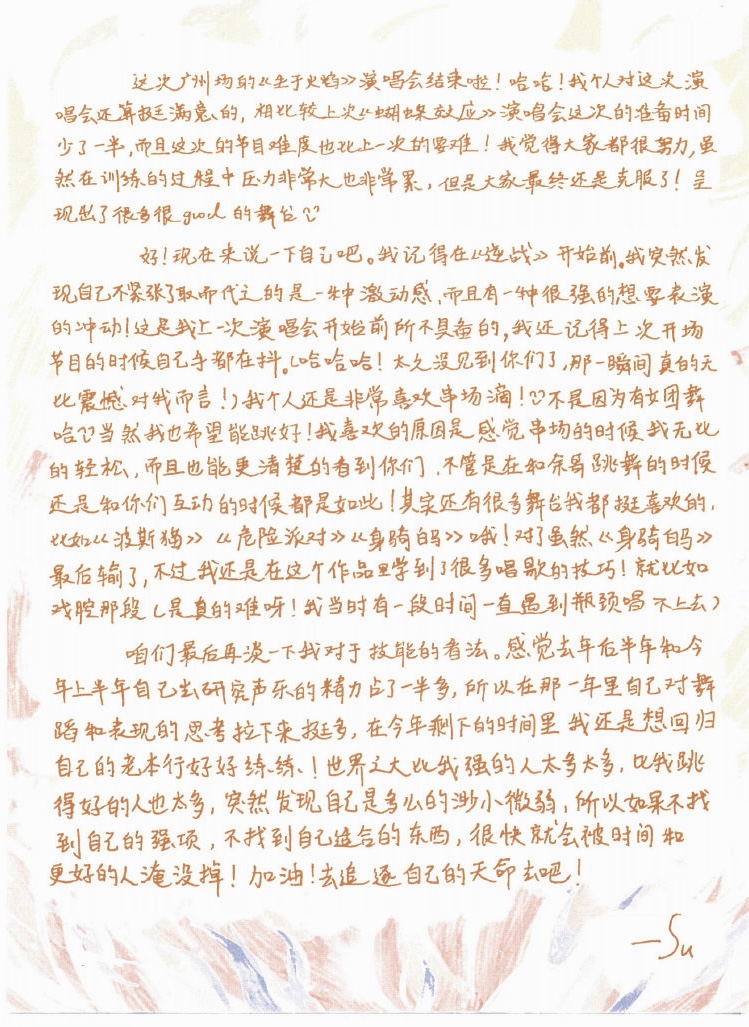 这次广州场的《生于火焰》演唱会结束啦！哈哈！我个人对这次演
唱会还算挺满意的，相比较上次《蝴蝶效应》演唱会这次的准备时间
少了一半，而且这次的节目难度也比上一次的要难！我觉得大家都很努力，虽
然在训练的过程中压力非常大也非常累，但是大家最终还是克服了！呈
现出了很多很good的舞台
好！现在来说一下自己吧。我记得在《逆战》开始前。我突然发
现自己不紧张了取而代之的是一种激动感，而且有一种很强的想要表演
的冲动！这是我上一次演唱会开始前所不具备的，我还记得上次开场
节目的时候自己手都在抖。（哈哈哈！太久没见到你们了，那一瞬间真的无
比震撼对我而言！）我个人还是非常喜欢串场滴！不是因为有女团舞
哈当然我也希望能跳好！我喜欢的原因是感觉串场的时候我无比
的轻松，而且也能更清楚的看到你们，不管是在和余客跳舞的时候
还是和你们互动的时候都是如此！其实还有很多舞台我都挺喜欢的，
比如《波斯猫》《危险派对》《身骑白马》哦！对了虽然《身骑白马》
最后输了，不过我还是在这个作品里学到了很多唱歌的技巧！就比如
戏腔那段（是真的难呀！我当时有一段时间一直遇到瓶颈唱不上去）
咱们最后再谈一下我对于技能的看法。感觉去年后半年和今
年上半年自己去研究声乐的精力占了一半多，所以在那一年里自己对舞
蹈和表现的思考拉下来挺多，在今年剩下的时间里我还是想回归
自己的老本行好好练练！世界之大比我强的人太多太多，比我跳
得好的人也太多，突然发现自己是多么的渺小微弱，所以如果不找
到自己的强项，不找到自己适合的东西，很快就会被时间和
更好的人淹没掉！加油！去追逐自己的天命去吧！
—Su